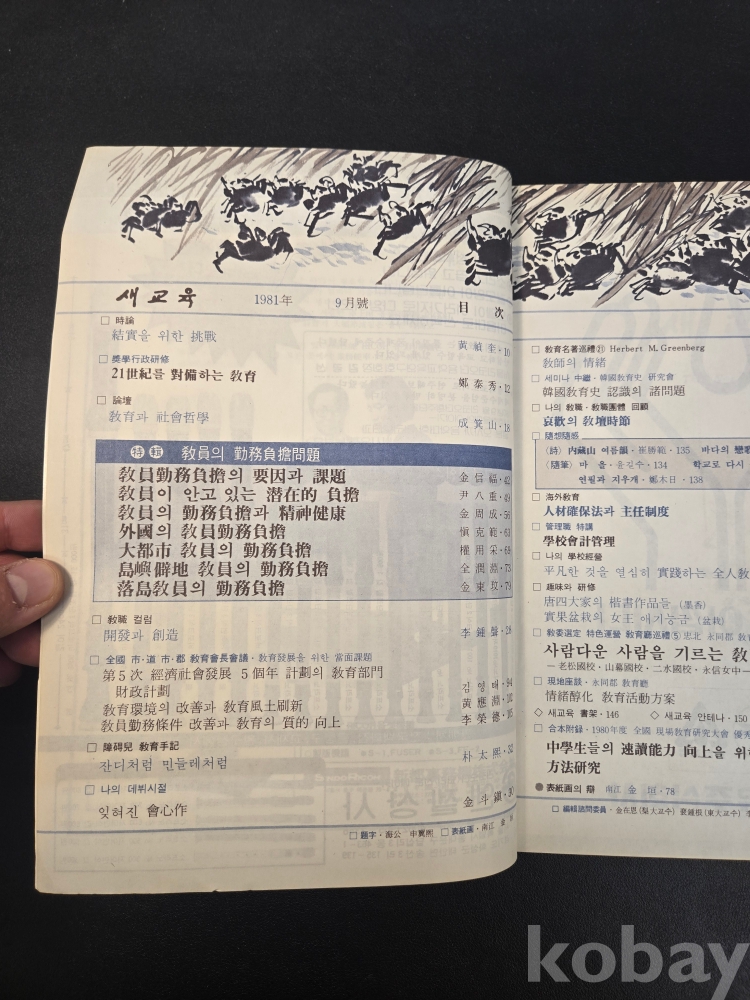 새교육 1981年 9月號 目次
□ 時論
結實을 위한 挑戰 黃禎奎·10
□ 奬學行政研修
21世紀를 對備하는 敎育 鄭泰秀·12
□ 論壇
敎育과 社會哲學 成箕山·18
特輯 敎員의 勤務負擔問題
敎員勤務負擔의 要因과 課題 金信福·42
敎員이 안고 있는 潛在的 負擔 尹八重·49
敎員의 勤務負擔과 精神健康 金周成·56
外國의 敎員勤務負擔 愼克範·63
大都市 敎員의 勤務負擔 權用采·68
島嶼僻地 敎員의 勤務負擔 全潤
落島敎員의 勤務負擔 金東
□ 敎職 컬럼
開發과 創造 李鍾聲·28
□ 全國 市·道 市·郡 敎育會長會議·敎育發展을 위한 當面課題
第5次 經濟社會發展 5個年 計劃의 敎育部門
財政計劃 김영태·94
敎育環境의 改善과 敎育風土刷新 黃應淵
敎員勤務條件 改善과 敎育의 質的 向上 李榮德
□ 障碍兒 敎育手記
잔디처럼 민들레처럼 朴太熙·32
□ 나의 데뷔시절
잊혀진 會心作 金斗鎭·30
□ 題字·海公 申翼熙 □ 表紙畵·南江
□ 敎育名著巡禮㉑ Herbert M. Greenberg
敎師의 情緖
□ 세미나 中繼·韓國敎育史 硏究會
韓國敎育史 認識의 諸問題
□ 나의 敎職·敎職團體 回顧
哀歡의 敎壇時節
□ 隨想隨感
(詩) 内藏山 여름韻·崔勝範·135 바다의 戀歌
(隨筆) 마 을·윤길수·134 학교로 다시
연필과 지우개·鄭木日·138
□ 海外敎育
人材確保法과 主任制度
□ 管理職 特講
學校會計管理
□ 나의 學校經營
平凡한 것을 열심히 實踐하는 全人敎
□ 趣味와 硏修
唐四大家의 楷書作品들 (墨香)
實果盆栽의 女王 애기능금 (盆栽)
□ 敎委選定 特色運營 敎育廳巡禮⑤ 忠北 永同郡 敎育
사람다운 사람을 기르는 敎
— 老松國校·山幕國校·二水國校·永信女中—
□ 現地座談·永同郡 敎育廳
情緖醇化 敎育活動方案
◇ 새교육 書架·146 ◇ 새교육 안테나·150
□ 合本附錄·1980年度 全國 現場敎育硏究大會 優秀
中學生들의 速讀能力 向上을 위한
方法硏究
● 表紙畵의 辯 南江 金垣·78
□ 編輯諮問委員·金在恩(梨大敎수) 裵鍾根(東大敎수)
kobay